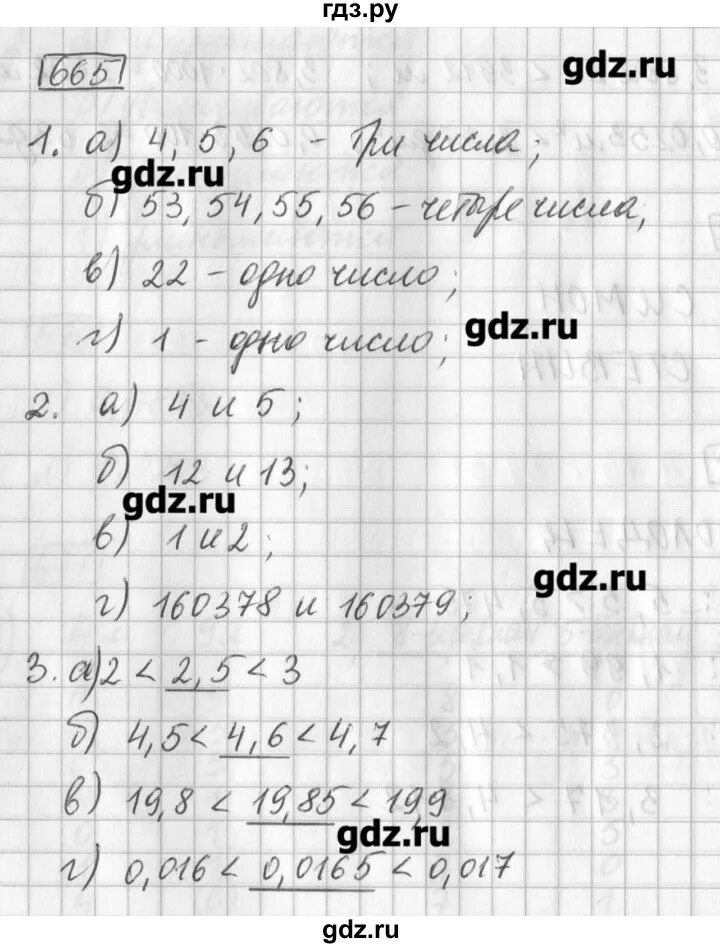 гдз.ру
665
gdz.ru
1. а) 4, 5, 6 - три числа;
gdz.ru
б) 53, 54, 55, 56 - четыре числа,
в) 22 - одно число;
gdz.ru
г) 1 - одно число;
2. а) 4 и 5;
б) 12 и 13;
gdz.ru
в) 1 и 2;
gdz.ru
г) 160378 и 160379;
3. а) 2 < 2,5 < 3
б) 4,5 < 4,6 < 4,7
в) 19,8 < 19,85 < 19,9
gdz.ru
г) 0,016 < 0,0165 < 0,017
gdz.ru